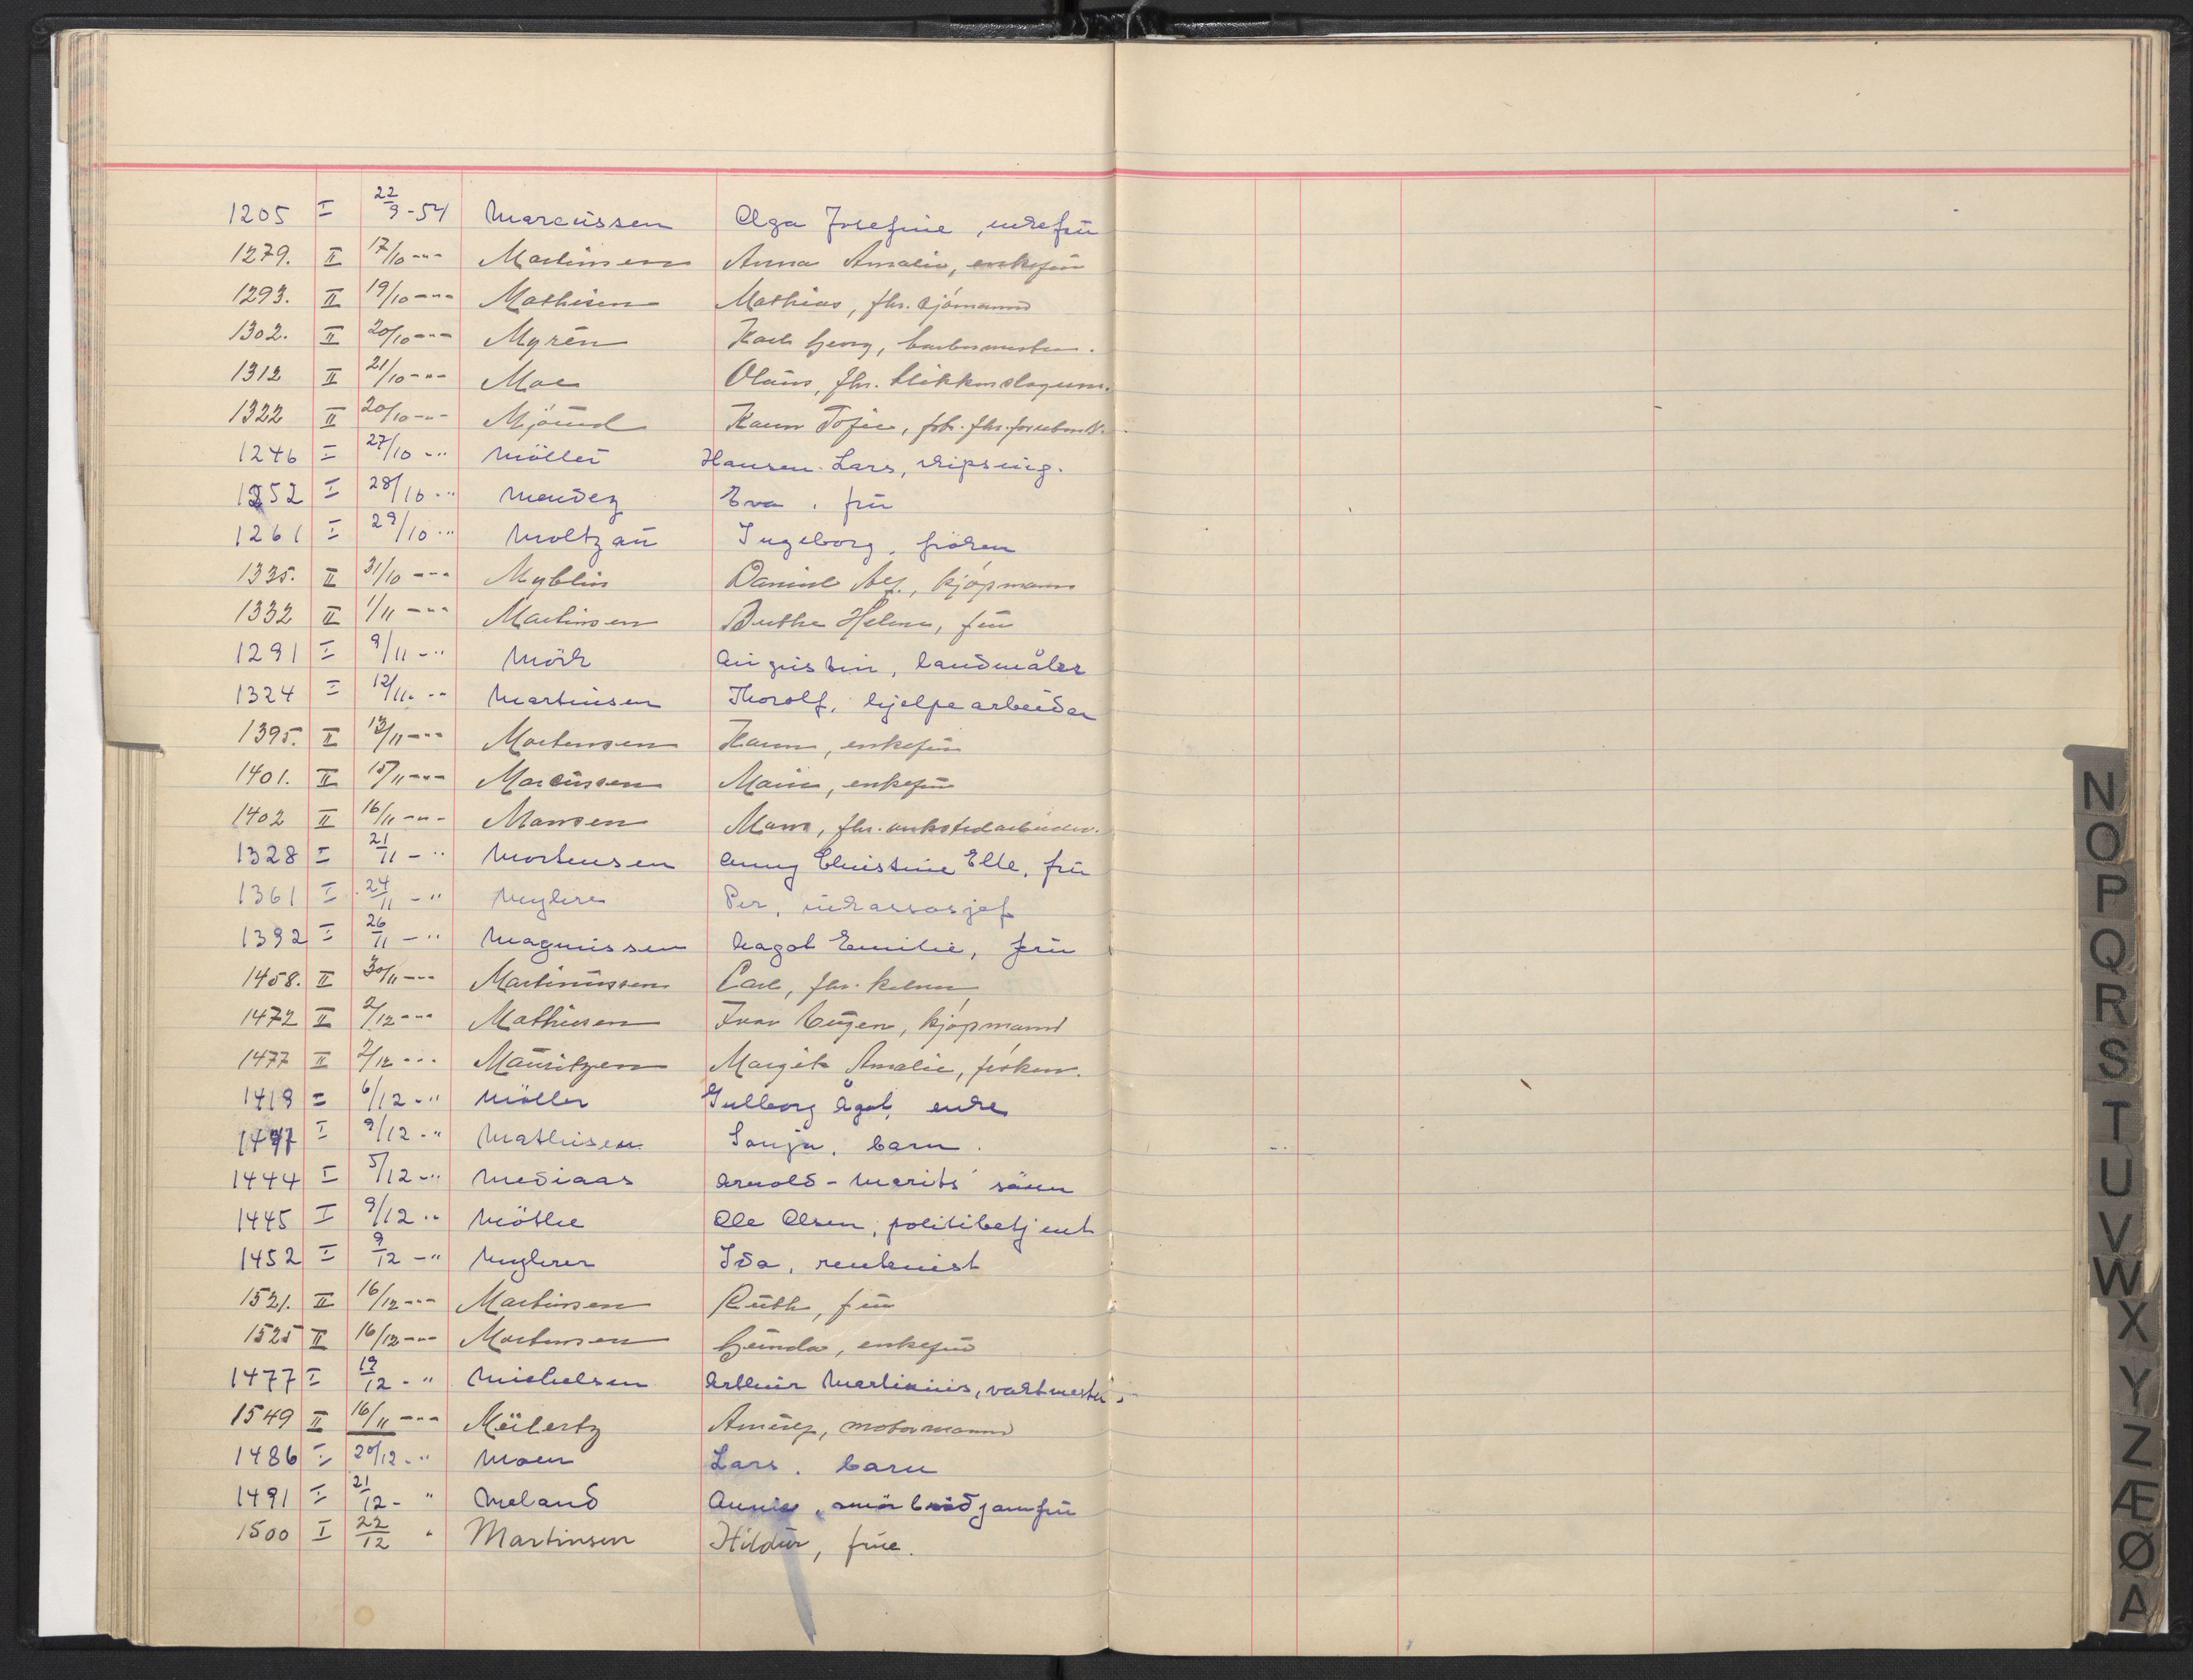 1205 I 22/9-54 Marcussen Olga Josefine, enkefrü
1279. II 17/10 -"- Martinsen Anna Amalie, enkefrü
1293. II 19/10 -"- Mathisen Mathias, fhv. sjömann
1302. II 20/10 -"- Myrén Karl Georg, barbermester.
1312 II 21/10 -"- Moe Olaüs, fhv. blikkenslagerm.
1322 II 20/10 -"- Mjöünd Karen Tofie,
1246 I 27/10 -" Möller Hansen Lars, skipsing.
1252 I 28/10 -" Mendez Eva, frü
1261 I 29/10 -" Moltzaü Ingeborg, fröken
1335. II 31/10 -"- Myblin Daniel Alf., kjöpmann
1332 II 1/11 -"- Martinsen Berthe Helene, frü
1291 I 9/11 -" Mörk Aügüstin, landmåler
1324 I 12/11 -" Martinsen Thorolf, hjelpearbeider
1395. II 13/11 -"- Mortensen Karen, enkefrü
1401. II 15/11 -"- Marcüssen Marie, enkefrü
1402 II 16/11 -"- Monsen Mons, fhv. verkstedarbeider.
1328 I 21/11 -" Mortensen Anny Christine Elle, frü
1361 I 24/11 -" Myhre Per, inkassosjef
1392 I 26/11 -" Magnüssen Aagot Emilie, frü
1458. II 30/11 -"- Martinüssen Carl, fhv. kelner
1472 II 2/12 -"- Mathiesen Ivar Eügen, kjöpmann
1477 II 2/12 -"- Maüritzen Margit Amalie, fröken.
1419 I 6/12 -" Möller Gulborg Ågot, enke
1447 I 9/12 -" Mathisen Sonja, barn.
1444 I 5/12 -" Mediaas Arnold - Marits sönn
1445 I 9/12 -" Möthe Ole Olsen, politibetjent
1452 I 9/12 -" Myhrer Ida, rentenist
1521. II 16/12 -"- Martinsen Rüth, frü
1525 II 16/12 -"- Mortensen Günda, enkefrü
1477 I 19/12 -" Michelsen Arthür Martiniüs, vaktmester
1549 II 16/11 -"- Meilertz motormann
1486 I 20/12 -" Moen Lars, barn
1491 I 21/12 -" Meland Annie, smörbrödjomfrü
1500 I 22/12 " Martinsen Hildür, früe.
N
O
P
Q
R
S
T
U
V
W
X
Y
Z
Æ
Ø
A